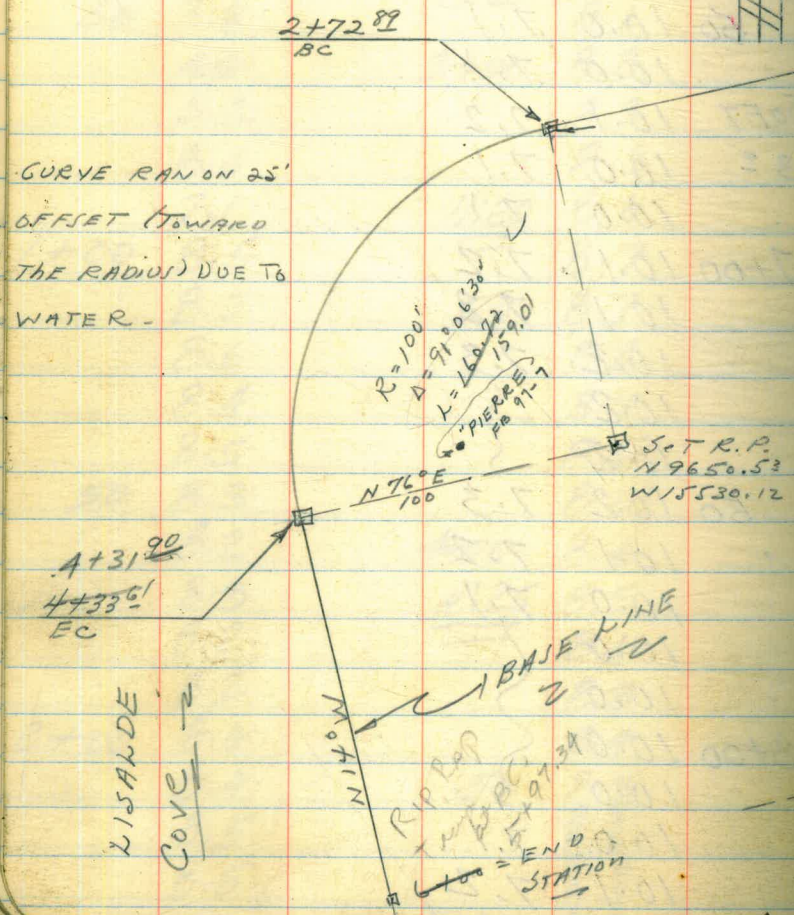 2+72 89
BC
CURVE RAN ON 25'
OFFSET (TOWARD
THE RADIUS) DUE TO
WATER -
R = 100'
Δ = 91° 06' 30"
L = 160.72
159.01
"PIERRE"
FB 97-7
SET R.P.
N 9650.53
W 15530.12
N 76° E
100
4+31 90
4+33 61
EC
BASE LINE
N 14° W
LISALDE
COVE
RIP RAP
5+97.34
6+00 = END
STATION